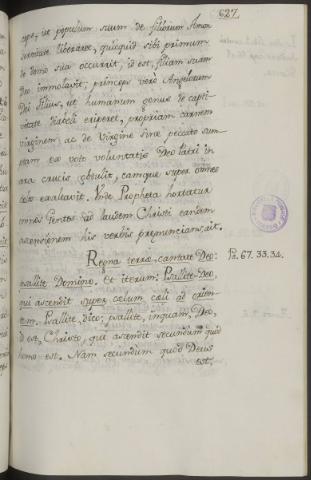 627.
cupe, ut populum suum de filiorum Amon
servitute liberaret, quicquid sibi primum
de domo sua occurrit, id est, filiam suam
Deo immolavit; princeps verò Angelorum
Dei filius, ut humanum genus de capti-
vitate diaboli eriperet, propriam carnem
virginem, ac de Virgine sine peccato sum-
ptam ex voto voluntatis Deo Patri in
ara crucis obtulit, eamque super omnes
celos exaltavit. Unde Propheta hortatur
omnes gentes ad laudem Christi eandem
ascensionem his verbis prenuncians, ait.
Regna terræ, cantate Deo: Ps. 67. 33. 34.
psallite Domino, et iterum: Psallite Deo,
qui ascendit super celum celi ad orien-
tem. Psallite, dico; psallite, inquam, Deo,
id est, Christo, qui ascendit secundum quod
homo est. Nam secundum quod Deus
est,